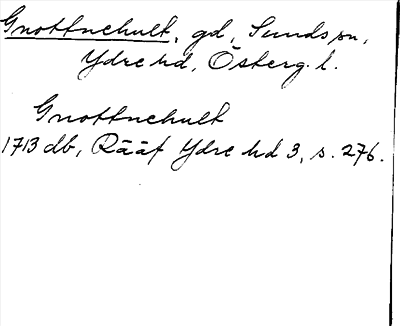 Gnottnehult, gd, Sunds sn,
Ydre hd, Österg. l.
Gnottnehult
1713 db, Rääf Ydre hd 3, s. 276.